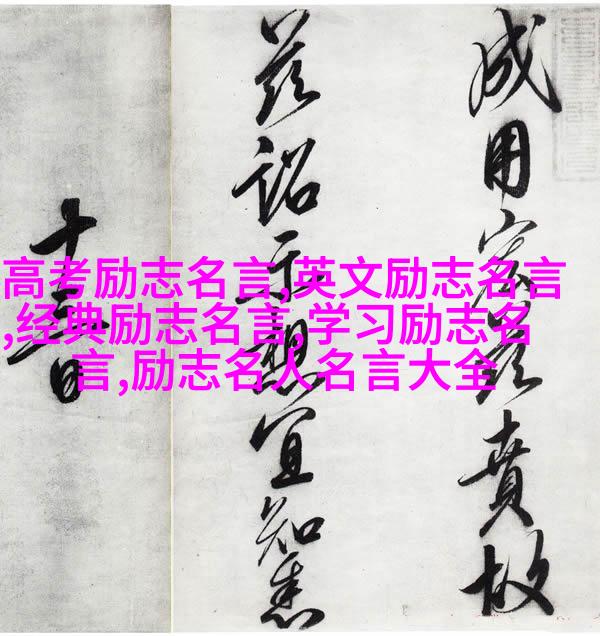 高考励志名言,英文励志名言
,经典励志名言,学习励志名
言,励志名人名言大全
成用賁故
茲詔示想宜知悉
十三日